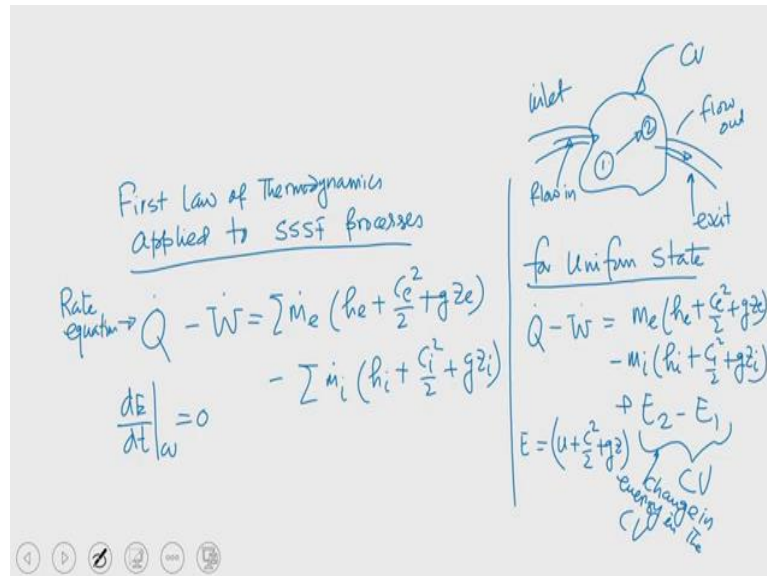 First Law of Thermodynamics
applied to SSSF Processes
Rate
equation → Q̇ - Ẇ = Σ ṁe (he + Ce²/2 + gZe)
- Σ ṁi (hi + Ci²/2 + gZi)
dE/dt|cv = 0
CV
inlet
flow
out
①
②
Flow in
exit
for Uniform State
Q̇ - Ẇ = me (he + Ce²/2 + gZe)
- mi (hi + Ci²/2 + gZi)
+ E2 - E1
E = (u + C²/2 + gz)
CV
Change in
energy in the
CV